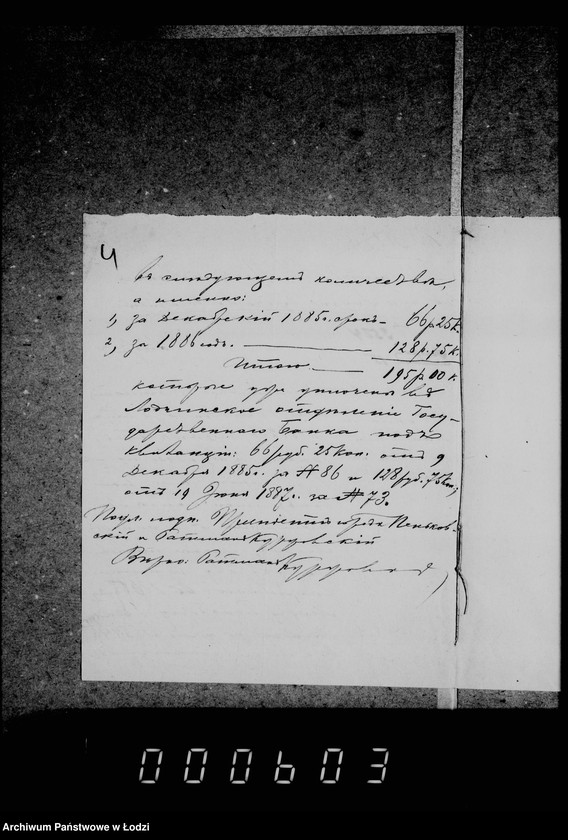 4
въ слѣдующемъ количествѣ,
а именно:
1, за Декабрскій 1885г. срокъ - 66р25к
2, за 1886 годъ. — 128р.75к.
Итого — 195р00к.
которые уже уплочены въ
Лодзинское отдѣленіе Госу-
дарственнаго Банка подъ
квитанціи: 66руб. 25коп. отъ 9
Декабря 1885г. за № 86 и 128руб. 75коп.,
отъ 19 Іюня 1887г. за № 73.
Подл. подп. Президентъ города Пеньков-
скій и Ратманъ
Вѣрно: Ратманъ
000603
Archiwum Państwowe w Łodzi